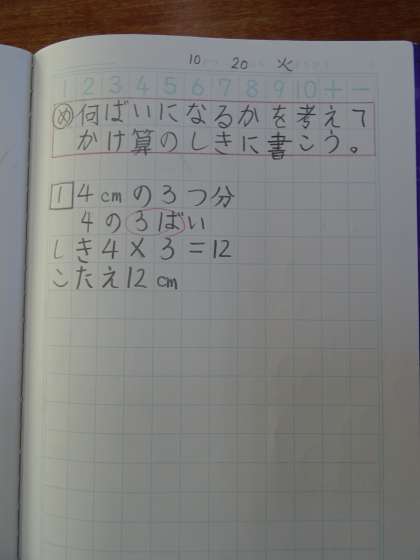 10 20 火
1 2 3 4 5 6 7 8 9 10 + −
め 何ばいになるかを考えて
かけ算のしきに書こう。
1 4cmの3つ分
4の3ばい
しき4×3=12
こたえ12cm